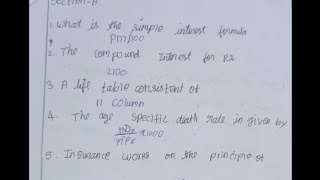 Section-A.
1. What is the simple interest formula
Pnr/100
2. The compound Interest for Rs
2100
3. A life table consistent of
11 column
4. The age specific death rate in given by
nDx/nPx x1000
5. Insurance works on the principle of